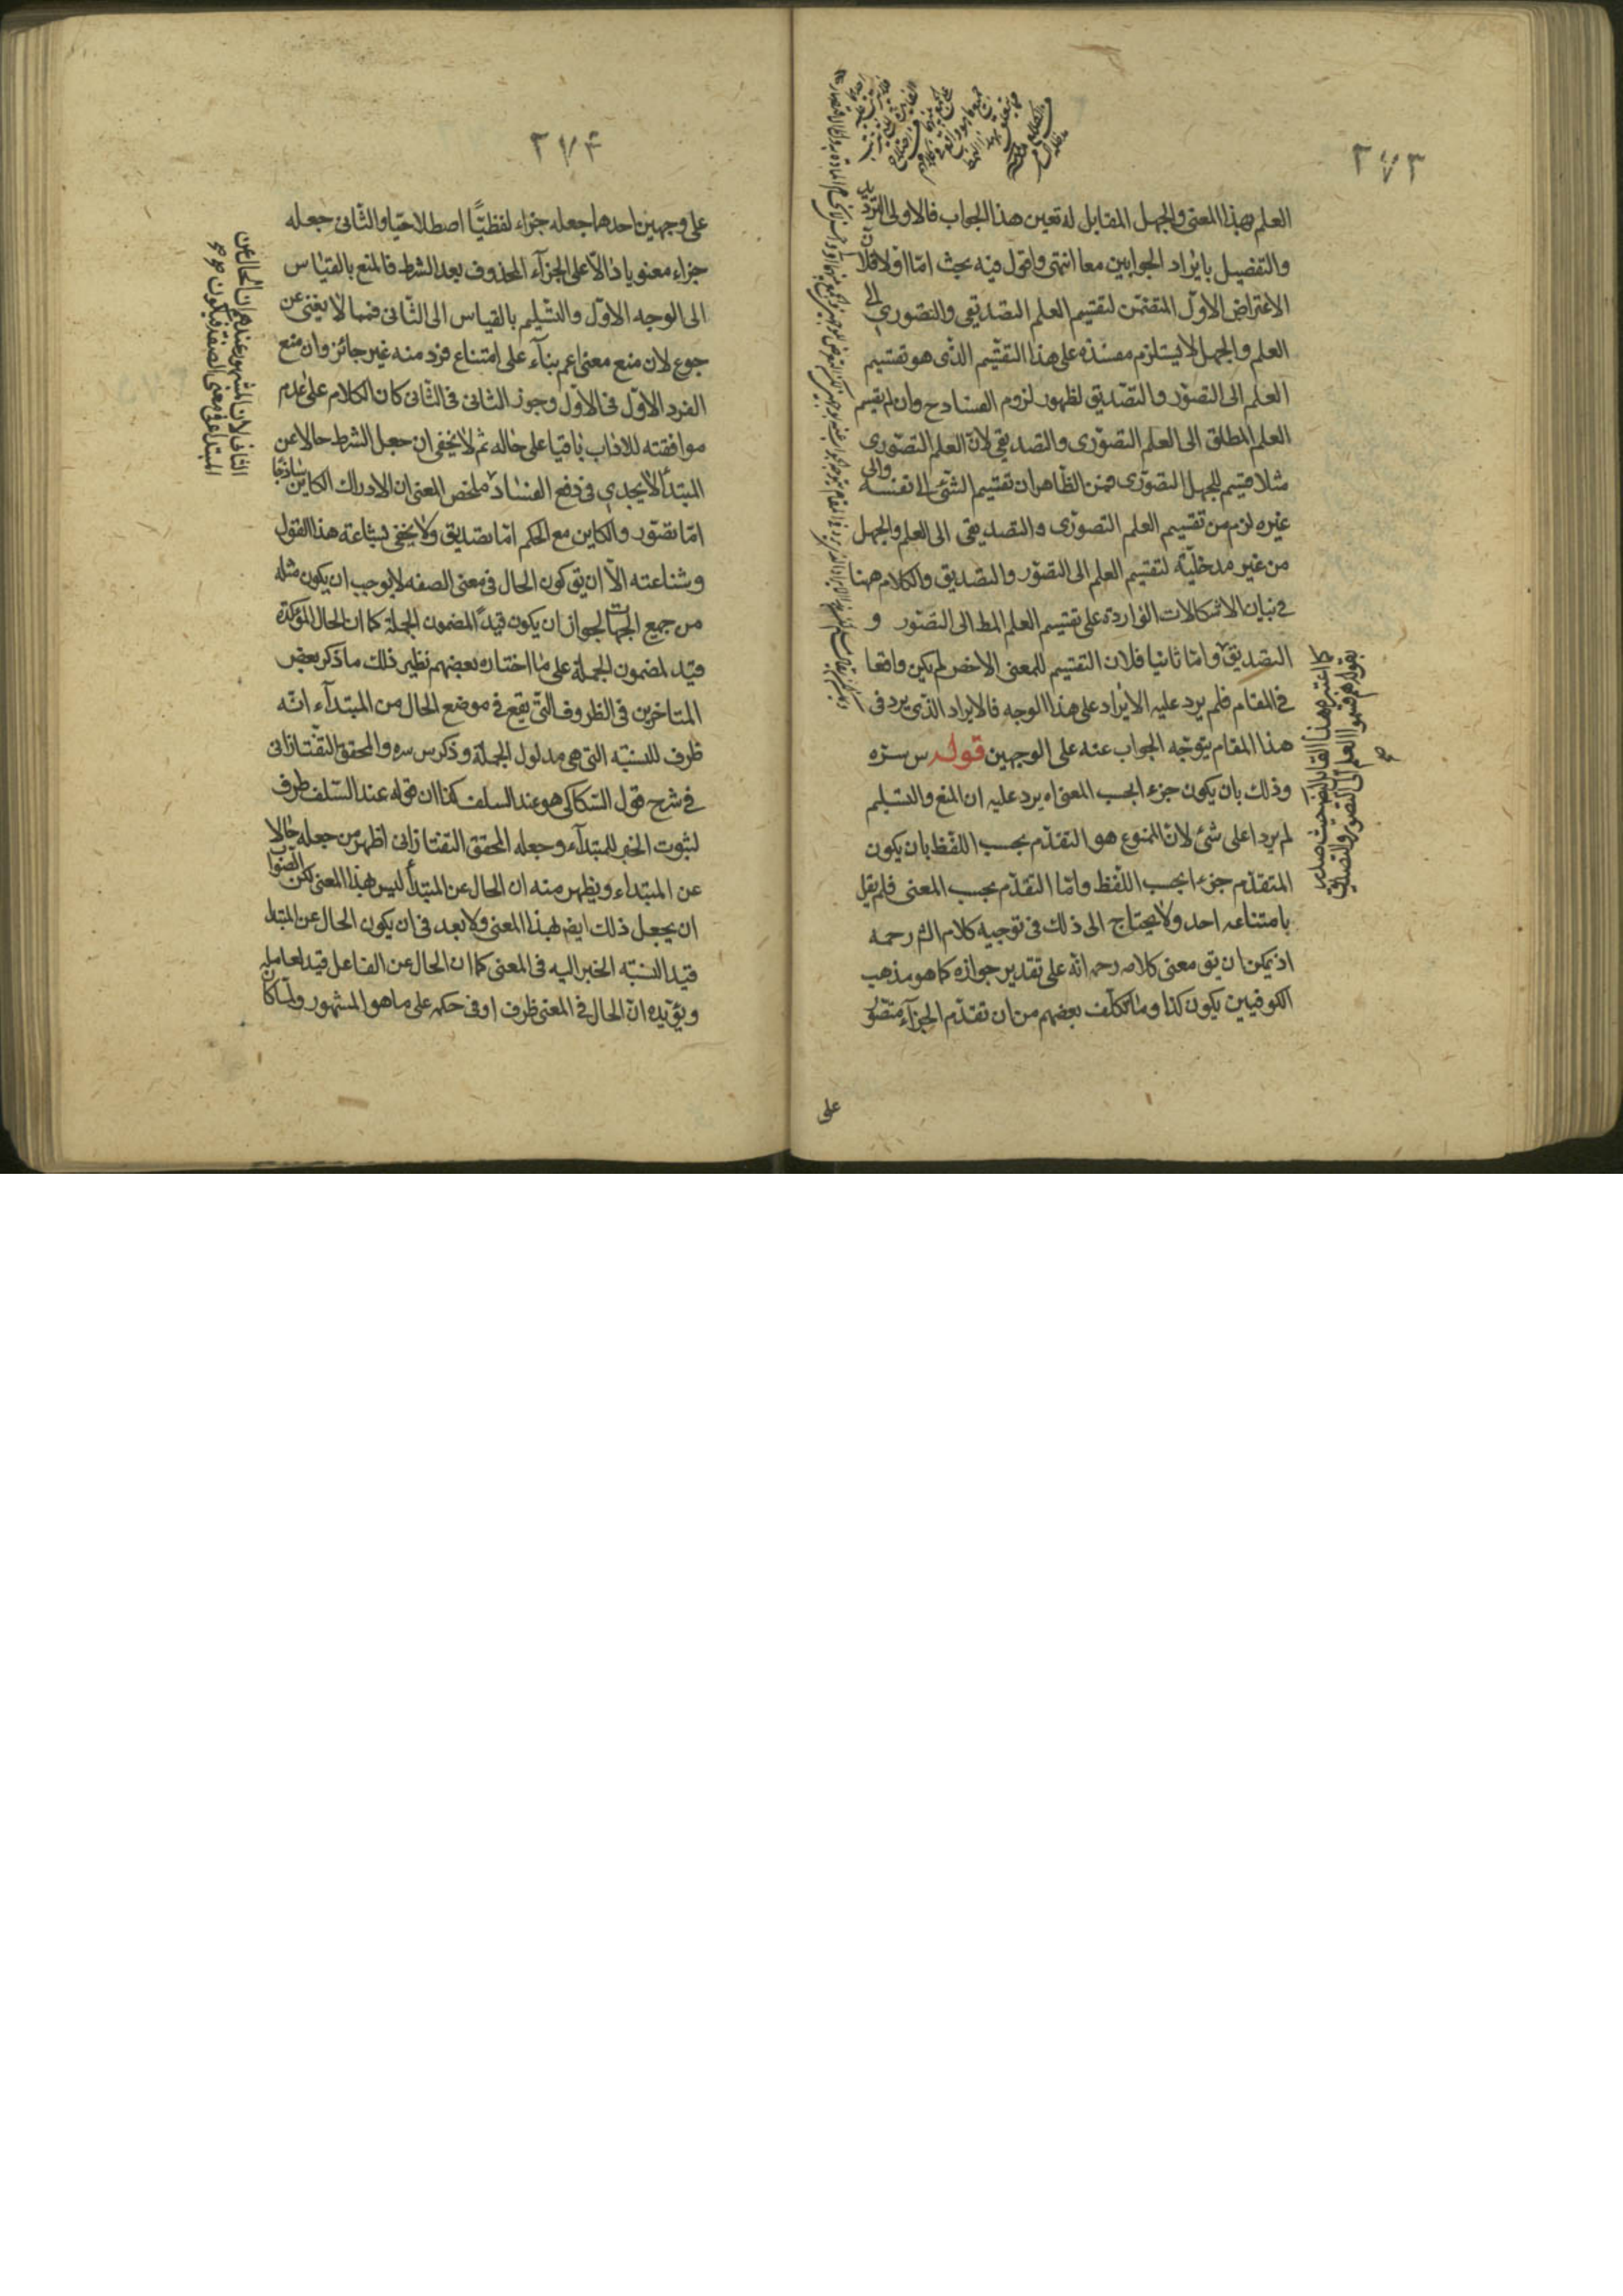 ٢٧٣
العلم بهذا المعنى والجهل المقابل له تعين هذا الجواب فالاولى الترديد
والتفصيل بايراد الجوابين معا انتهى واقول فيه بحث امّا اولا فلان
الاعتراض الاوّل المتضمّن لتقسيم العلم التصديقى والتصورى الى
العلم والجهل لا يستلزم مفسدة على هذا التقسيم الذى هو تقسيم
العلم الى التصوّر والتصديق لظهور لزوم الفساد ح وان لم يقسم
العلم المطلق الى العلم التصوّرى والتصديقى لانّ العلم التصوّرى
مثلا قسيم للجهل التصوّرى فمن الظاهر ان تقسيم الشئ الى نفسه والى
غيره لزم من تقسيم العلم التصوّرى والتصديقى الى العلم والجهل
من غير مدخليّة لتقسيم العلم الى التصوّر والتصديق والكلام ههنا
فى بيان الاشكالات الواردة على تقسيم العلم المط الى التصوّر و
التصديق وامّا ثانيا فلان التقسيم للمعنى الاخص لم يكن واقعا
فى المقام فلم يرد عليه الايراد على هذا الوجه فالايراد الذى يرد فى
هذا المقام يتوجّه الجواب عنه على الوجهين قوله س سرّه
وذلك بان يكون جزء ابحسب المعنى اه يرد عليه ان المنع والتسليم
لم يردا على شئ لانّ الممنوع هو التقدّم بحسب اللفظ بان يكون
المتقدّم جزء ابحسب اللفظ وامّا التقدّم بحسب المعنى فلم يقل
بامتناعه احد ولا يحتاج الى ذلك فى توجيه كلام الش رحمه
اذ يمكن ان يق معنى كلامه رحمه انّه على تقدير جوازه كما هو مذهب
الكوفيين يكون كذا وما تكلّف بعضهم من ان تقدّم الجزآء متصوّر
على
كما اعتبر ههنا القابل حيث صدر
بقوله قسموا العلم الى التصور والتصديق
٢٧٤
على وجهين احدهما جعله جزاء لفظيّا اصطلاحيّا والثّانى جعله
جزاء معنويا دالّا على الجزآء المحذوف بعد الشرط فالمنع بالقياس
الى الوجه الاوّل والتسليم بالقياس الى الثّانى فمما لا يغنى عن
جوع لان منع معنى اعم بنآء على امتناع فرد منه غير جائز وان منع
الفرد الاوّل فى الاوّل وجوز الثانى فى الثّانى كان الكلام على عدم
موافقته للاداب باقيا على حاله ثم لا يخفى ان جعل الشرط حالا عن
المبتدأ لا يجدى فى دفع الفساد ملخص المعنى ان الادراك الكاين ساذجا
امّا تصوّر والكاين مع الحكم امّا تصديق ولا يخفى بشاعة هذا القول
وشناعته الّا ان يق كون الحال فى معنى الصفه لا يوجب ان يكون مثله
من جميع الجهات لجواز ان يكون قيدًا لمضمون الجملة كما ان الحال المؤكدة
قيد لمضمون الجملة على ما اختاره بعضهم نظير ذلك ما ذكر بعض
المتاخرين فى الظروف التى تقع فى موضع الحال من المبتدآء انّه
ظرف للنسبّة التى هى مدلول الجملة وذكر س سره والمحقق التفتازانى
فى شرح قول السكاكى هو عند السلف كذا ان قوله عند السّلف ظرف
لثبوت الخبر للمبتدآء وجعله المحقق التفتازانى اظهر من جعله حالا
عن المبتداء ويظهر منه ان الحال عن المبتدأ ليس بهذا المعنى لكن الصواب
ان يجعل ذلك ايضا بهذا المعنى ولا بعد فى ان يكون الحال عن المبتدا
قيد النسبّة الخبر اليه فى المعنى كما ان الحال عن الفاعل قيد لعامله
ويؤيّده انّ الحال فى المعنى ظرف او فى حكمه على ما هو المشهور ولمّا كان
الثانى فلان المشهور عندهم ان الحال عن
المبتدا فى معنى الصفة فيكون